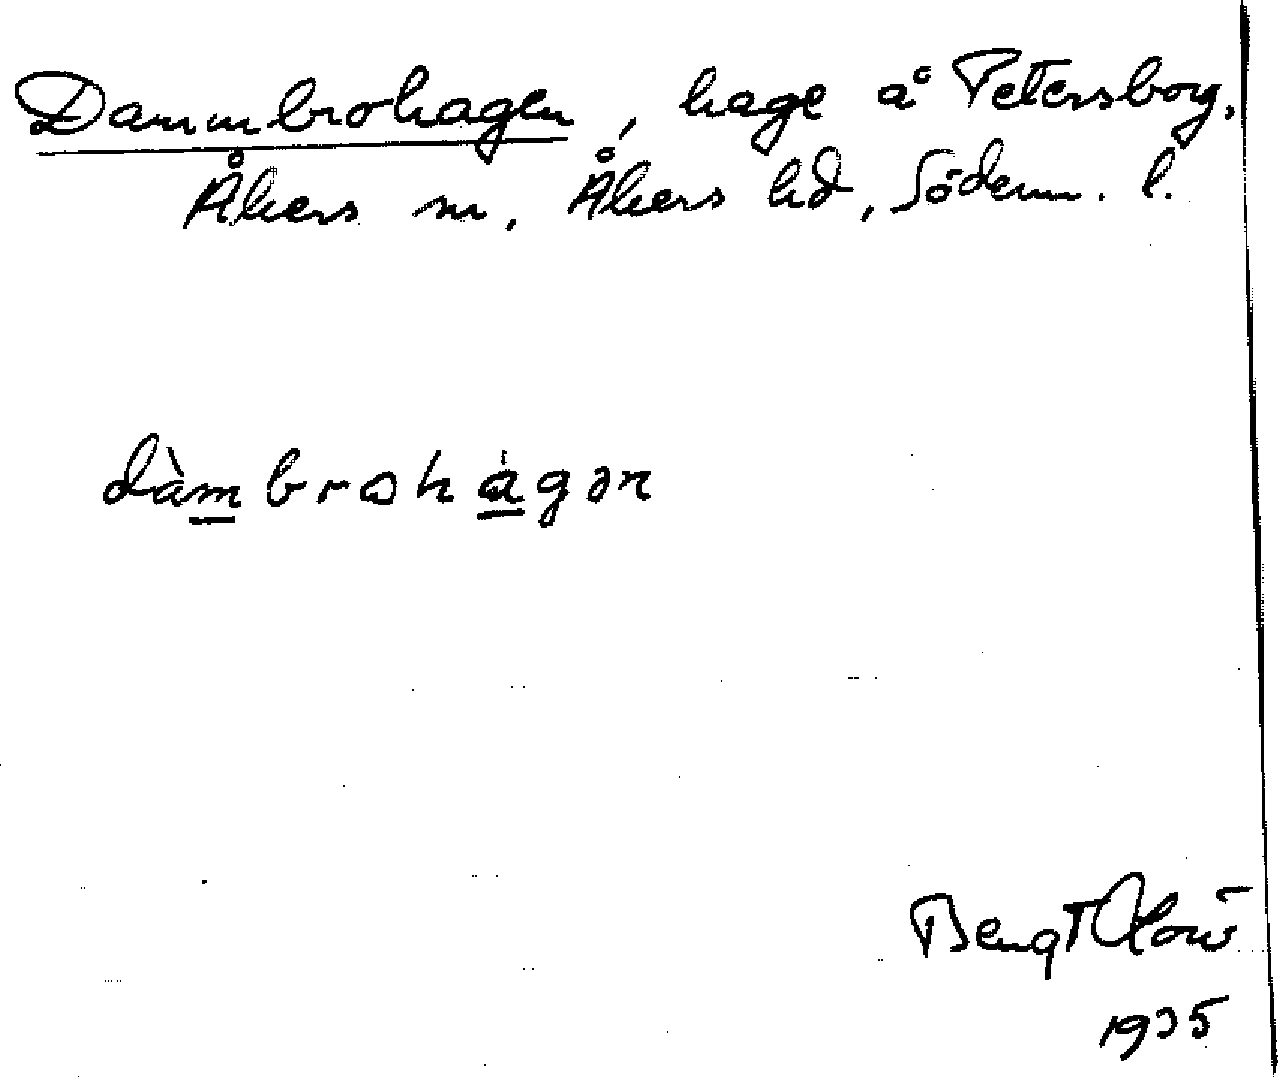 Dammbrohagen, hage å Petersborg,
Åkers sn, Åkers hd, Söderm. l.
dàmbrohágən
Bengt
1935